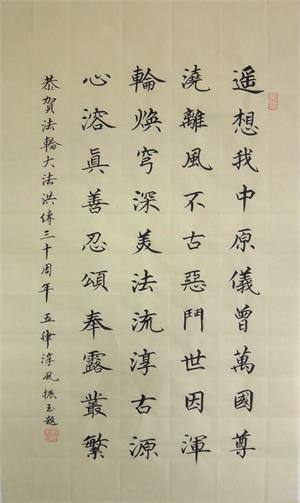 遥想我中原儀曾萬國尊
澆離風不古惡鬥世因渾
輪煥穹深美法流淳古源
心溶眞善忍頌奉露叢繁
恭賀法輪大法洪傳三十周年 五律淳風 振玉題